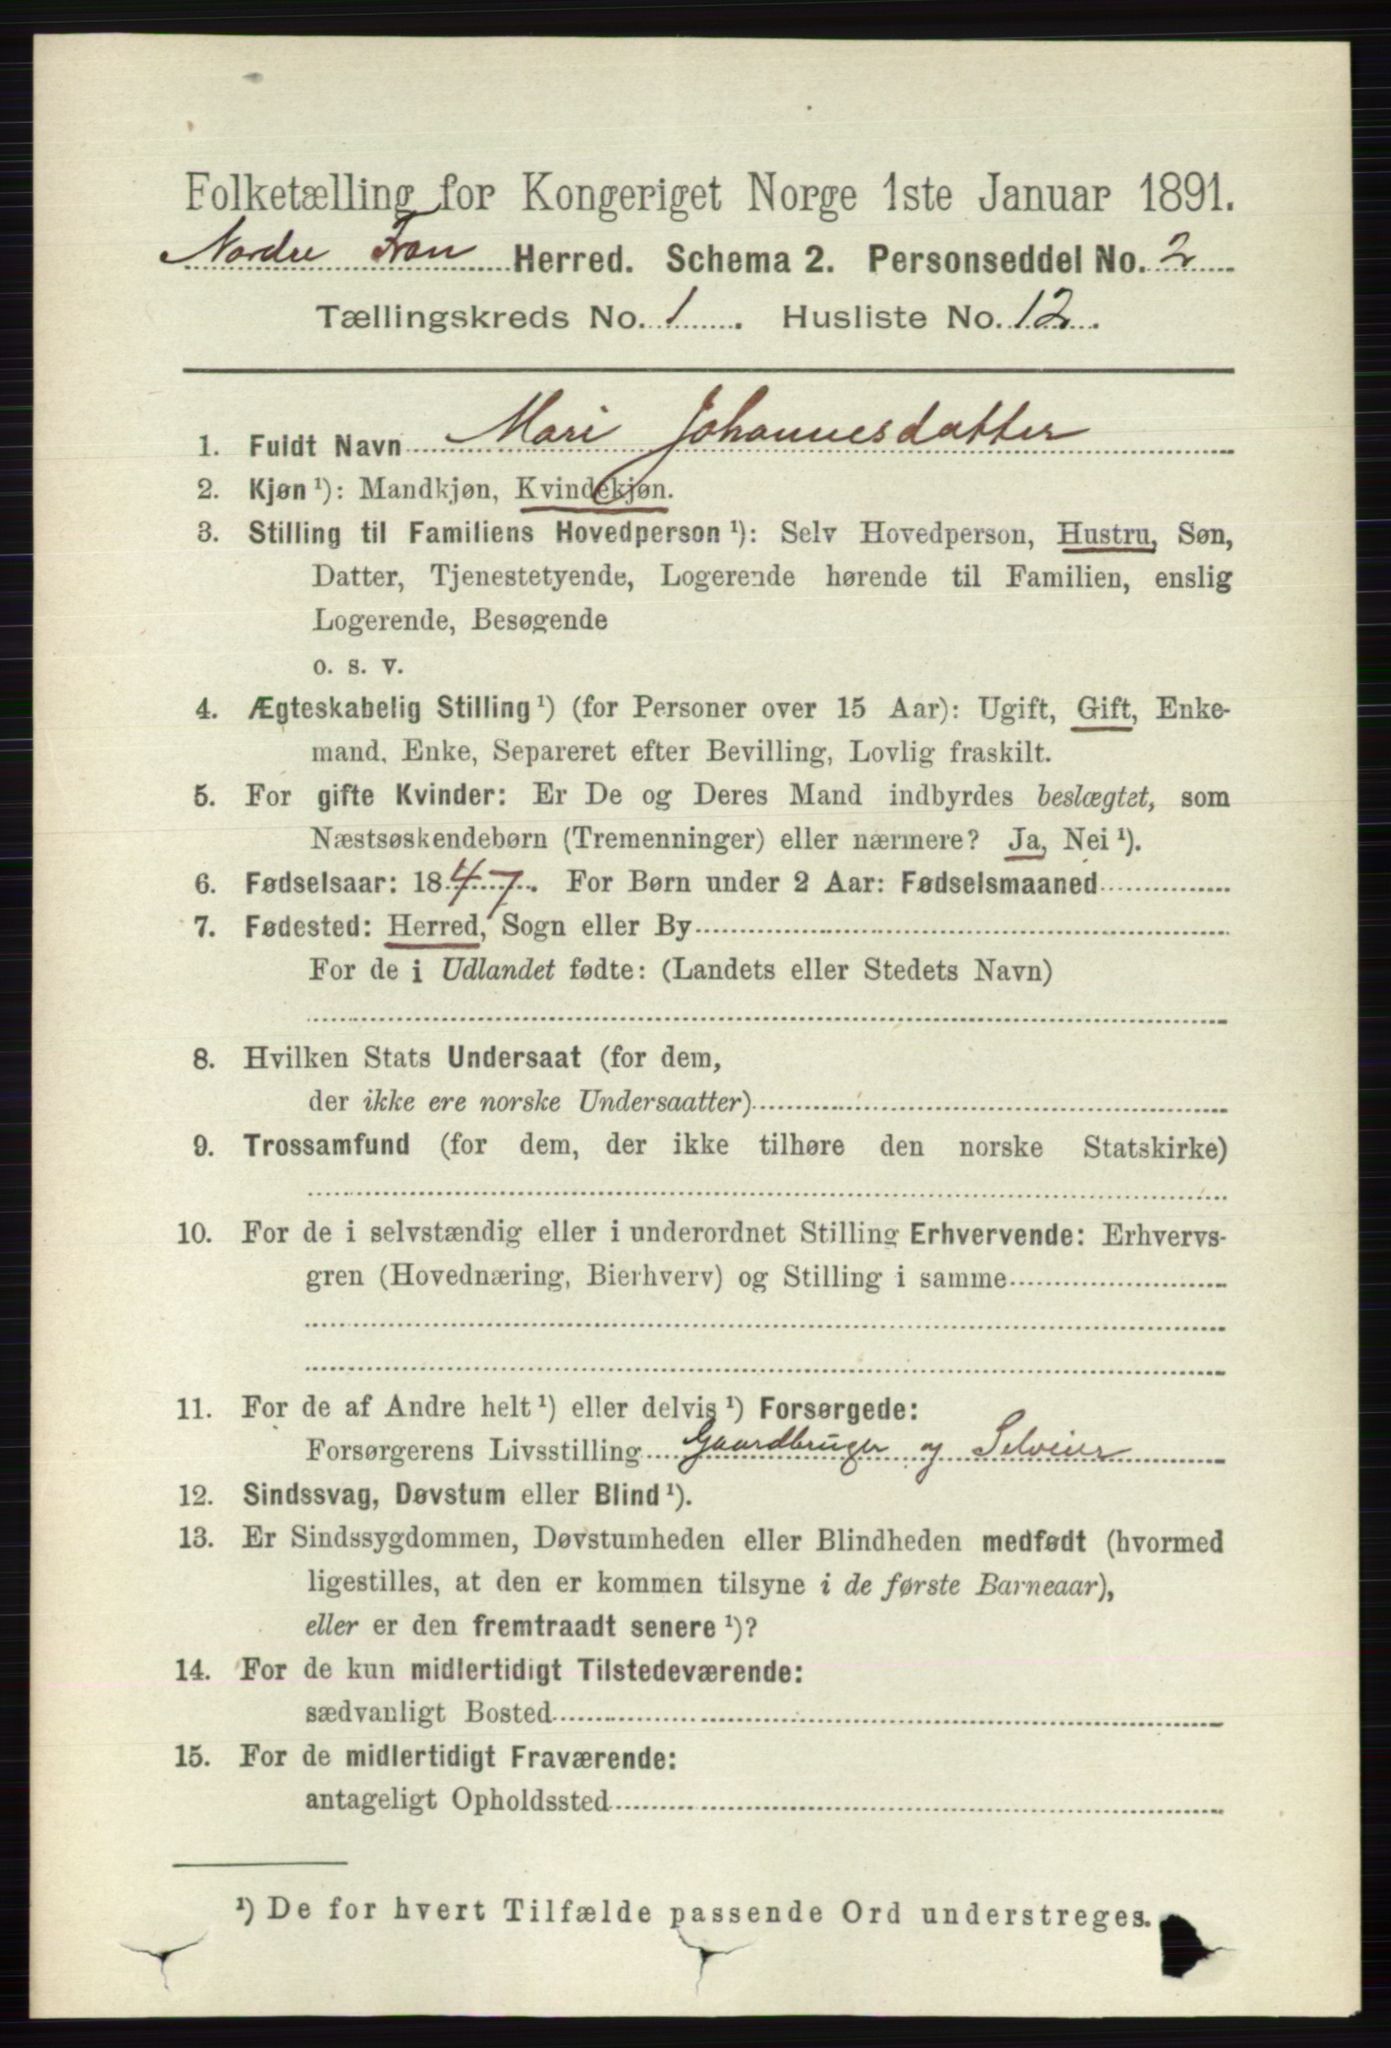 Folketælling for Kongeriget Norge 1ste Januar 1891.
Nordre Fron Herred. Schema 2. Personseddel No. 2
Tællingskreds No. 1. Husliste No. 12.
1. Fuldt Navn Mari Johannesdatter
2. Kjøn ¹): Mandkjøn, Kvindekjøn.
3. Stilling til Familiens Hovedperson ¹): Selv Hovedperson, Hustru, Søn,
Datter, Tjenestetyende, Logerende hørende til Familien, enslig
Logerende, Besøgende
o. s. v.
4. Ægteskabelig Stilling ¹) (for Personer over 15 Aar): Ugift, Gift, Enke-
mand, Enke, Separeret efter Bevilling, Lovlig fraskilt.
5. For gifte Kvinder: Er De og Deres Mand indbyrdes beslægtet, som
Næstsøskendebørn (Tremenninger) eller nærmere? Ja, Nei ¹).
6. Fødselsaar: 1847. For Børn under 2 Aar: Fødselsmaaned
7. Fødested: Herred, Sogn eller By
For de i Udlandet fødte: (Landets eller Stedets Navn)
8. Hvilken Stats Undersaat (for dem,
der ikke ere norske Undersaatter)
9. Trossamfund (for dem, der ikke tilhøre den norske Statskirke)
10. For de i selvstændig eller i underordnet Stilling Erhvervende: Erhvervs-
gren (Hovednæring, Bierhverv) og Stilling i samme
11. For de af Andre helt ¹) eller delvis ¹) Forsørgede:
Forsørgerens Livsstilling Gaardbruger og Selveier
12. Sindssvag, Døvstum eller Blind ¹).
13. Er Sindssygdommen, Døvstumheden eller Blindheden medfødt (hvormed
ligestilles, at den er kommen tilsyne i de første Barneaar),
eller er den fremtraadt senere ¹)?
14. For de kun midlertidigt Tilstedeværende:
sædvanligt Bosted
15. For de midlertidigt Fraværende:
antageligt Opholdssted
¹) De for hvert Tilfælde passende Ord understreges.